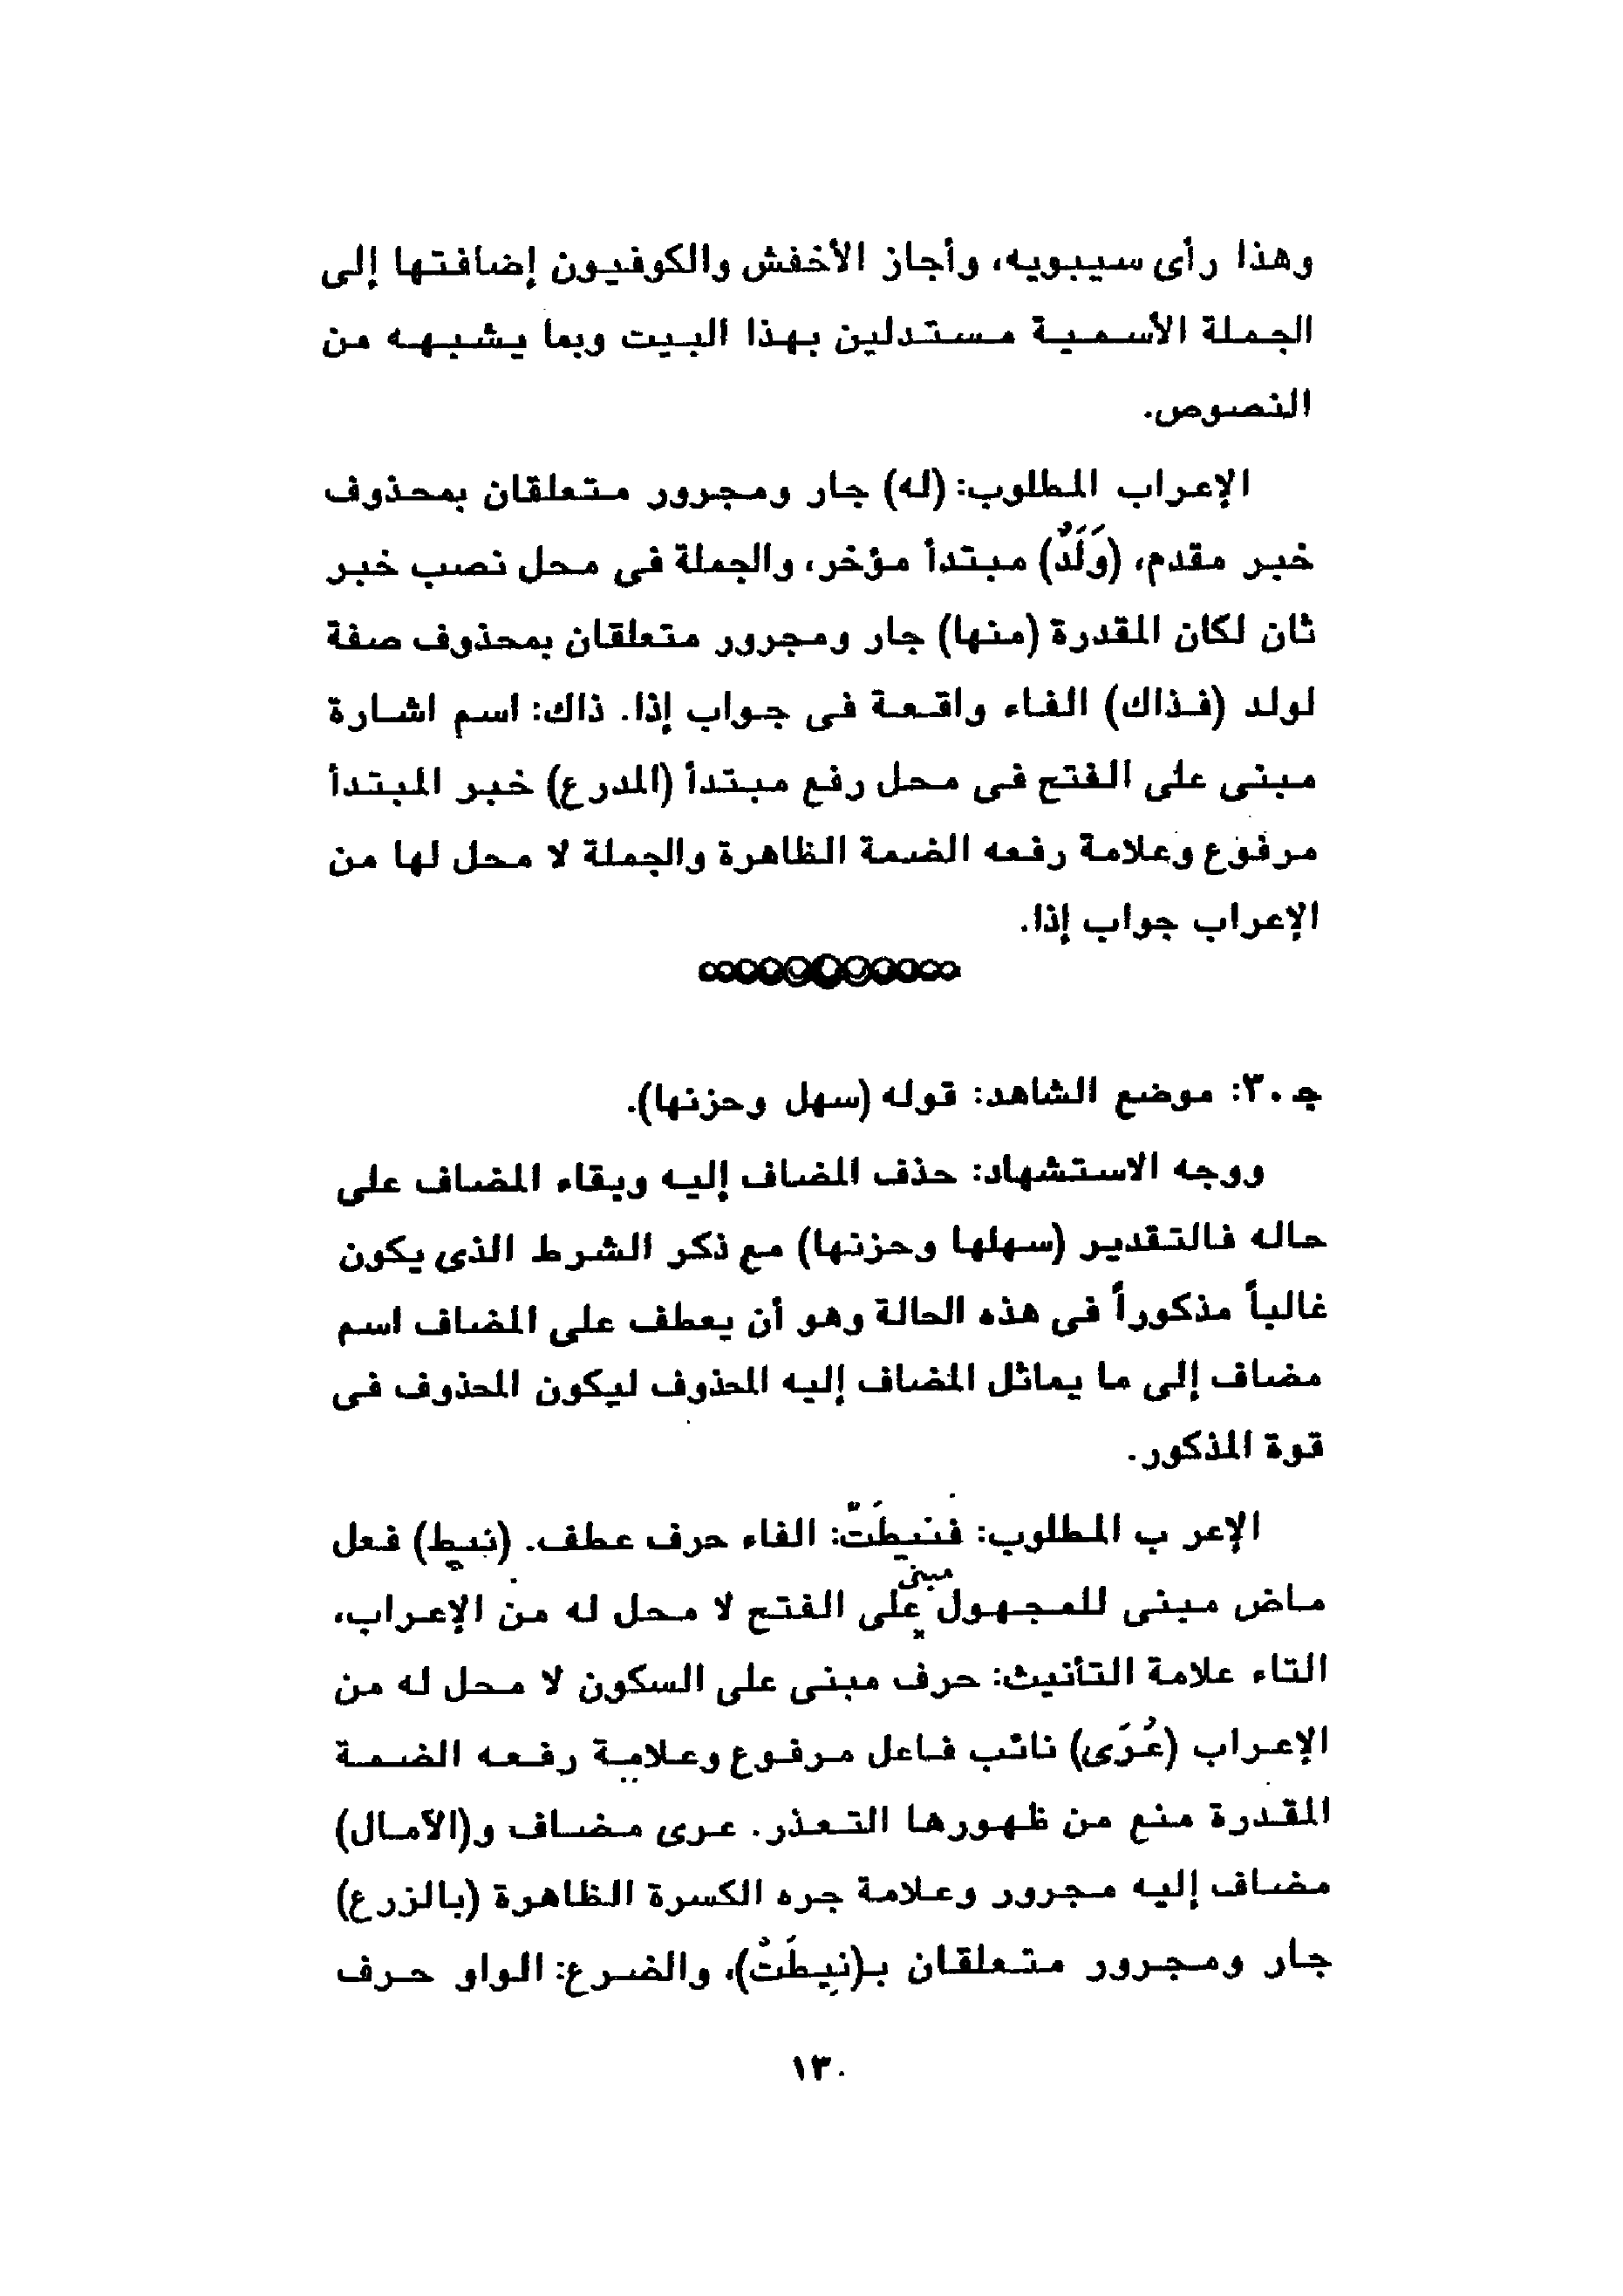 وهذا رأى سيبويه، وأجاز الأخفش والكوفيون إضافتها إلى
الجملة الأسمية مستدلين بهذا البيت وبما يشبهه من
النصوص.
الإعراب المطلوب: (له) جار ومجرور متعلقان بمحذوف
خبر مقدم، (وَلَدٌ) مبتدأ مؤخر، والجملة فى محل نصب خبر
ثان لكان المقدرة (منها) جار ومجرور متعلقان بمحذوف صفة
لولد (فذاك) الفاء واقعة فى جواب إذا. ذاك: اسم اشارة
مبنى على الفتح فى محل رفع مبتدأ (المدرع) خبر المبتدأ
مرفوع وعلامة رفعه الضمة الظاهرة والجملة لا محل لها من
الإعراب جواب إذا.
جـ ٣٠: موضع الشاهد: قوله (سهل وحزنها).
ووجه الاستشهاد: حذف المضاف إليه وبقاء المضاف على
حاله فالتقدير (سهلها وحزنها) مع ذكر الشرط الذى يكون
غالباً مذكوراً فى هذه الحالة وهو أن يعطف على المضاف اسم
مضاف إلى ما يماثل المضاف إليه المحذوف ليكون المحذوف فى
قوة المذكور.
الإعر ب المطلوب: فنيطَتْ: الفاء حرف عطف. (نيط) فعل
مبنى
ماض مبنى للمجهول على الفتح لا محل له من الإعراب،
التاء علامة التأنيث: حرف مبنى على السكون لا محل له من
الإعراب (عُرَى) نائب فاعل مرفوع وعلامة رفعه الضمة
المقدرة منع من ظهورها التعذر. عرى مضاف و(الآمال)
مضاف إليه مجرور وعلامة جره الكسرة الظاهرة (بالزرع)
جار ومجرور متعلقان بـ(نيطَتْ)، والضرع: الواو حرف
١٣٠